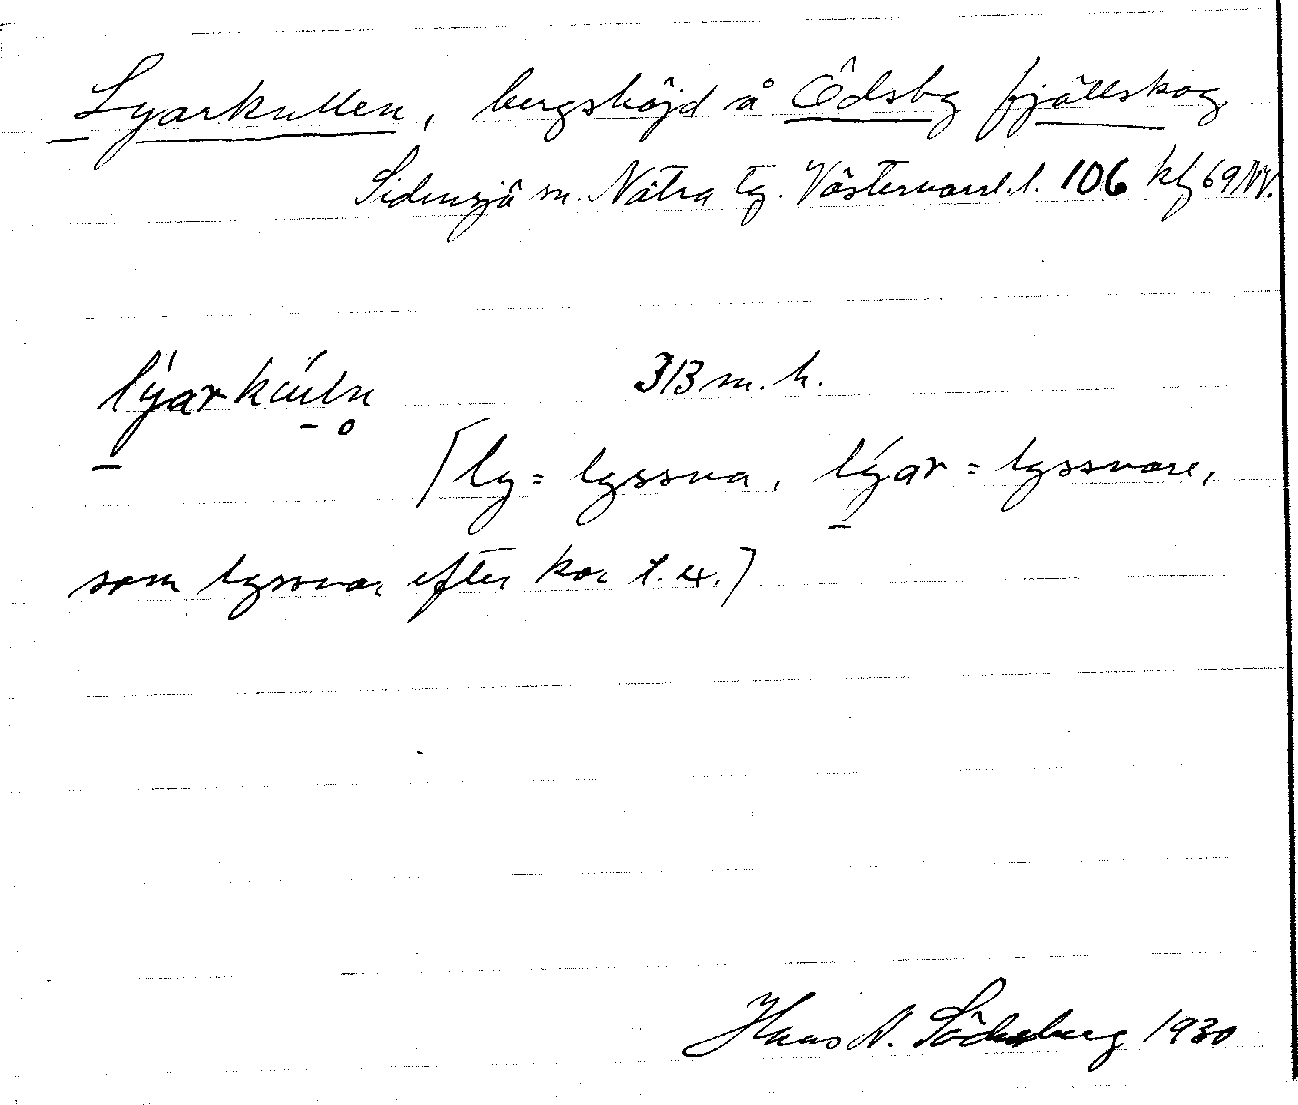 Lyarkullen, bergshöjd å Ödsby fjällskog,
Sidensjö sn. Nätra tg. Västernorrl. l. 106 kbl 69 NV.
lýarkúln 313 m. h.
[ly = lyssna, lýar = lyssnare,
som lyssnar efter kor t. ex.]
Hans N. Söderberg 1930